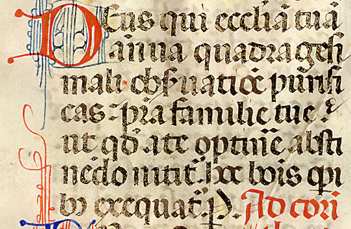 Deus qui eccliam tuā
annua quadragesi
mali obsuatiōe purifi
cas. pra familie tue. ?
ut qd a te optinē absti
nēdo nititr. hoc bōis opi
bus exequat. P. Ad com